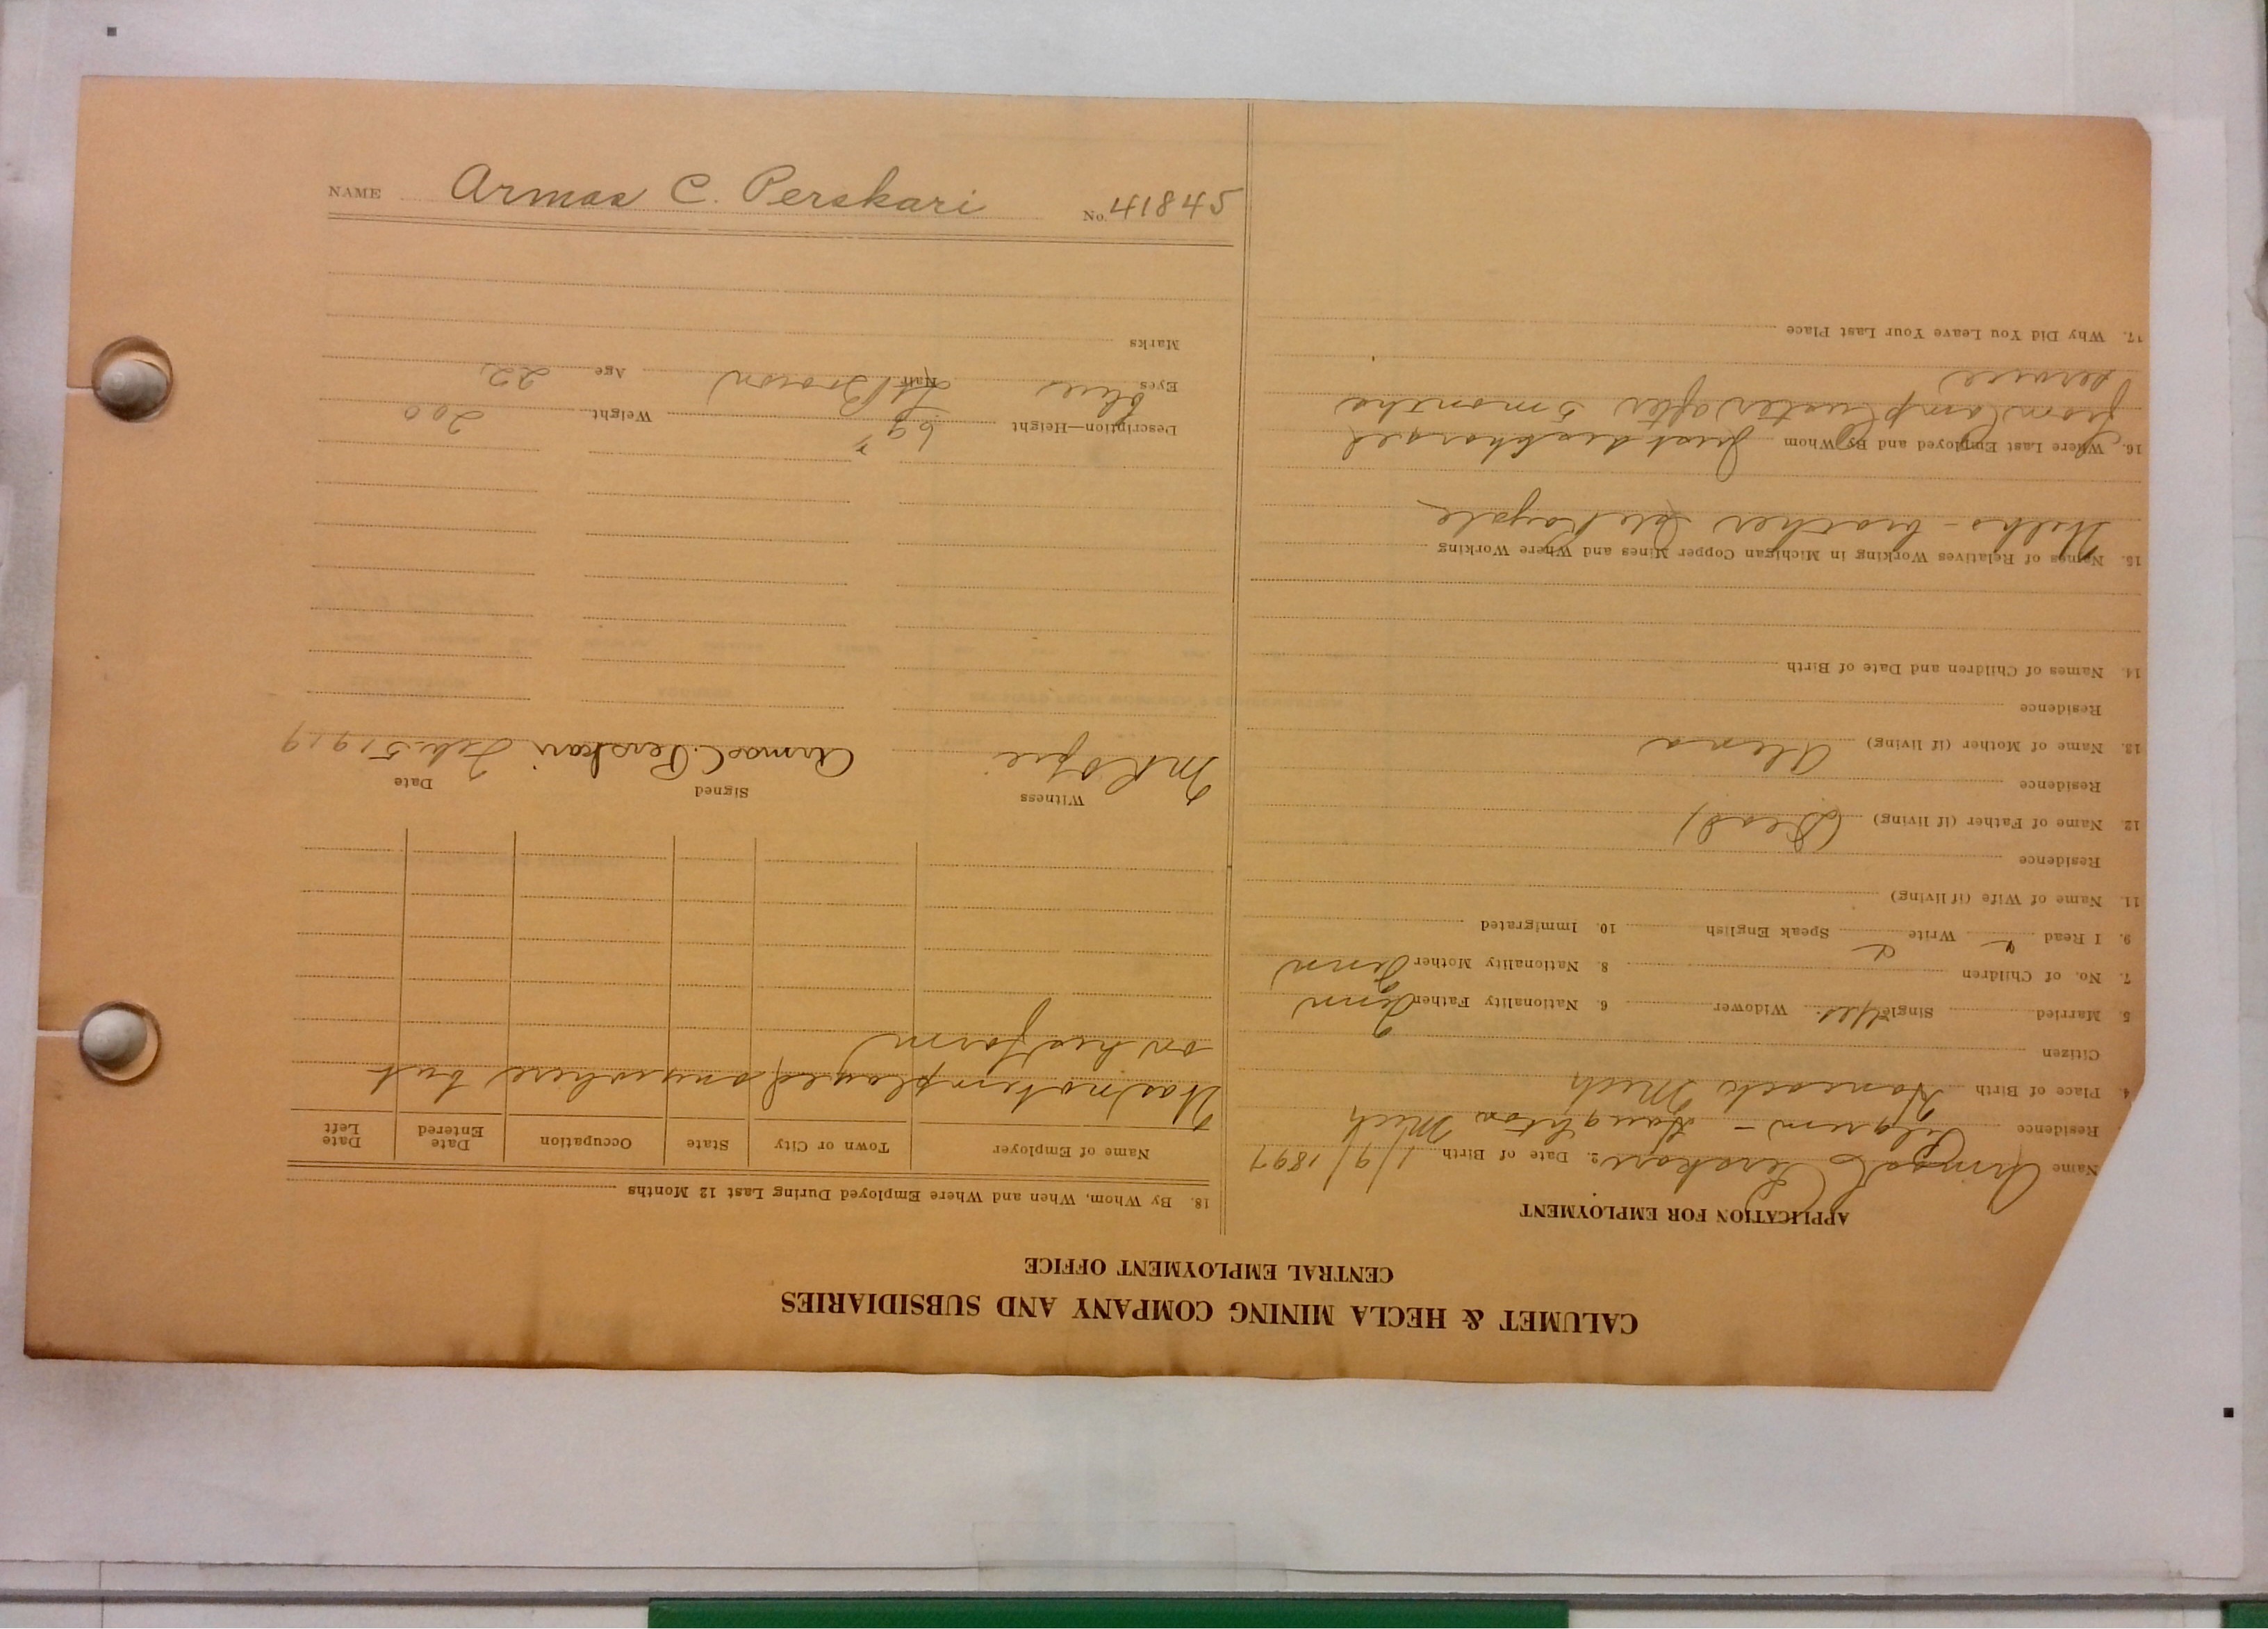 CALUMET & HECLA MINING COMPANY AND SUBSIDIARIES
CENTRAL EMPLOYMENT OFFICE
APPLICATION FOR EMPLOYMENT
Name Armas C Perskari 2. Date of Birth 1/9/1897
Residence Pilgrim - Houghton Mich
4. Place of Birth Hancock Mich
Citizen
5. Married Single Yes Widower 6. Nationality Father Finn
7. No. of Children 8. Nationality Mother Finn
9. I Read Write Speak English 10. Immigrated
11. Name of Wife (if living)
Residence
12. Name of Father (if living) (Dead)
Residence
13. Name of Mother (if living) Alena
Residence
14. Names of Children and Date of Birth
15. Names of Relatives Working in Michigan Copper Mines and Where Working
- brother Isle Royale
16. Where Last Employed and By Whom Just discharged
from Camp Custer after 5 months
service
17. Why Did You Leave Your Last Place
18. By Whom, When and Where Employed During Last 12 Months
Name of Employer Town or City State Occupation Date Entered Date Left
Was not employed anywhere but
on his farm
Witness Signed Date
Armas C. Perskari Feb. 5 1919
Description—Height Weight 200
Eyes blue Hair Lt Brown Age 22
Marks
NAME Armas C. Perskari No. 41845